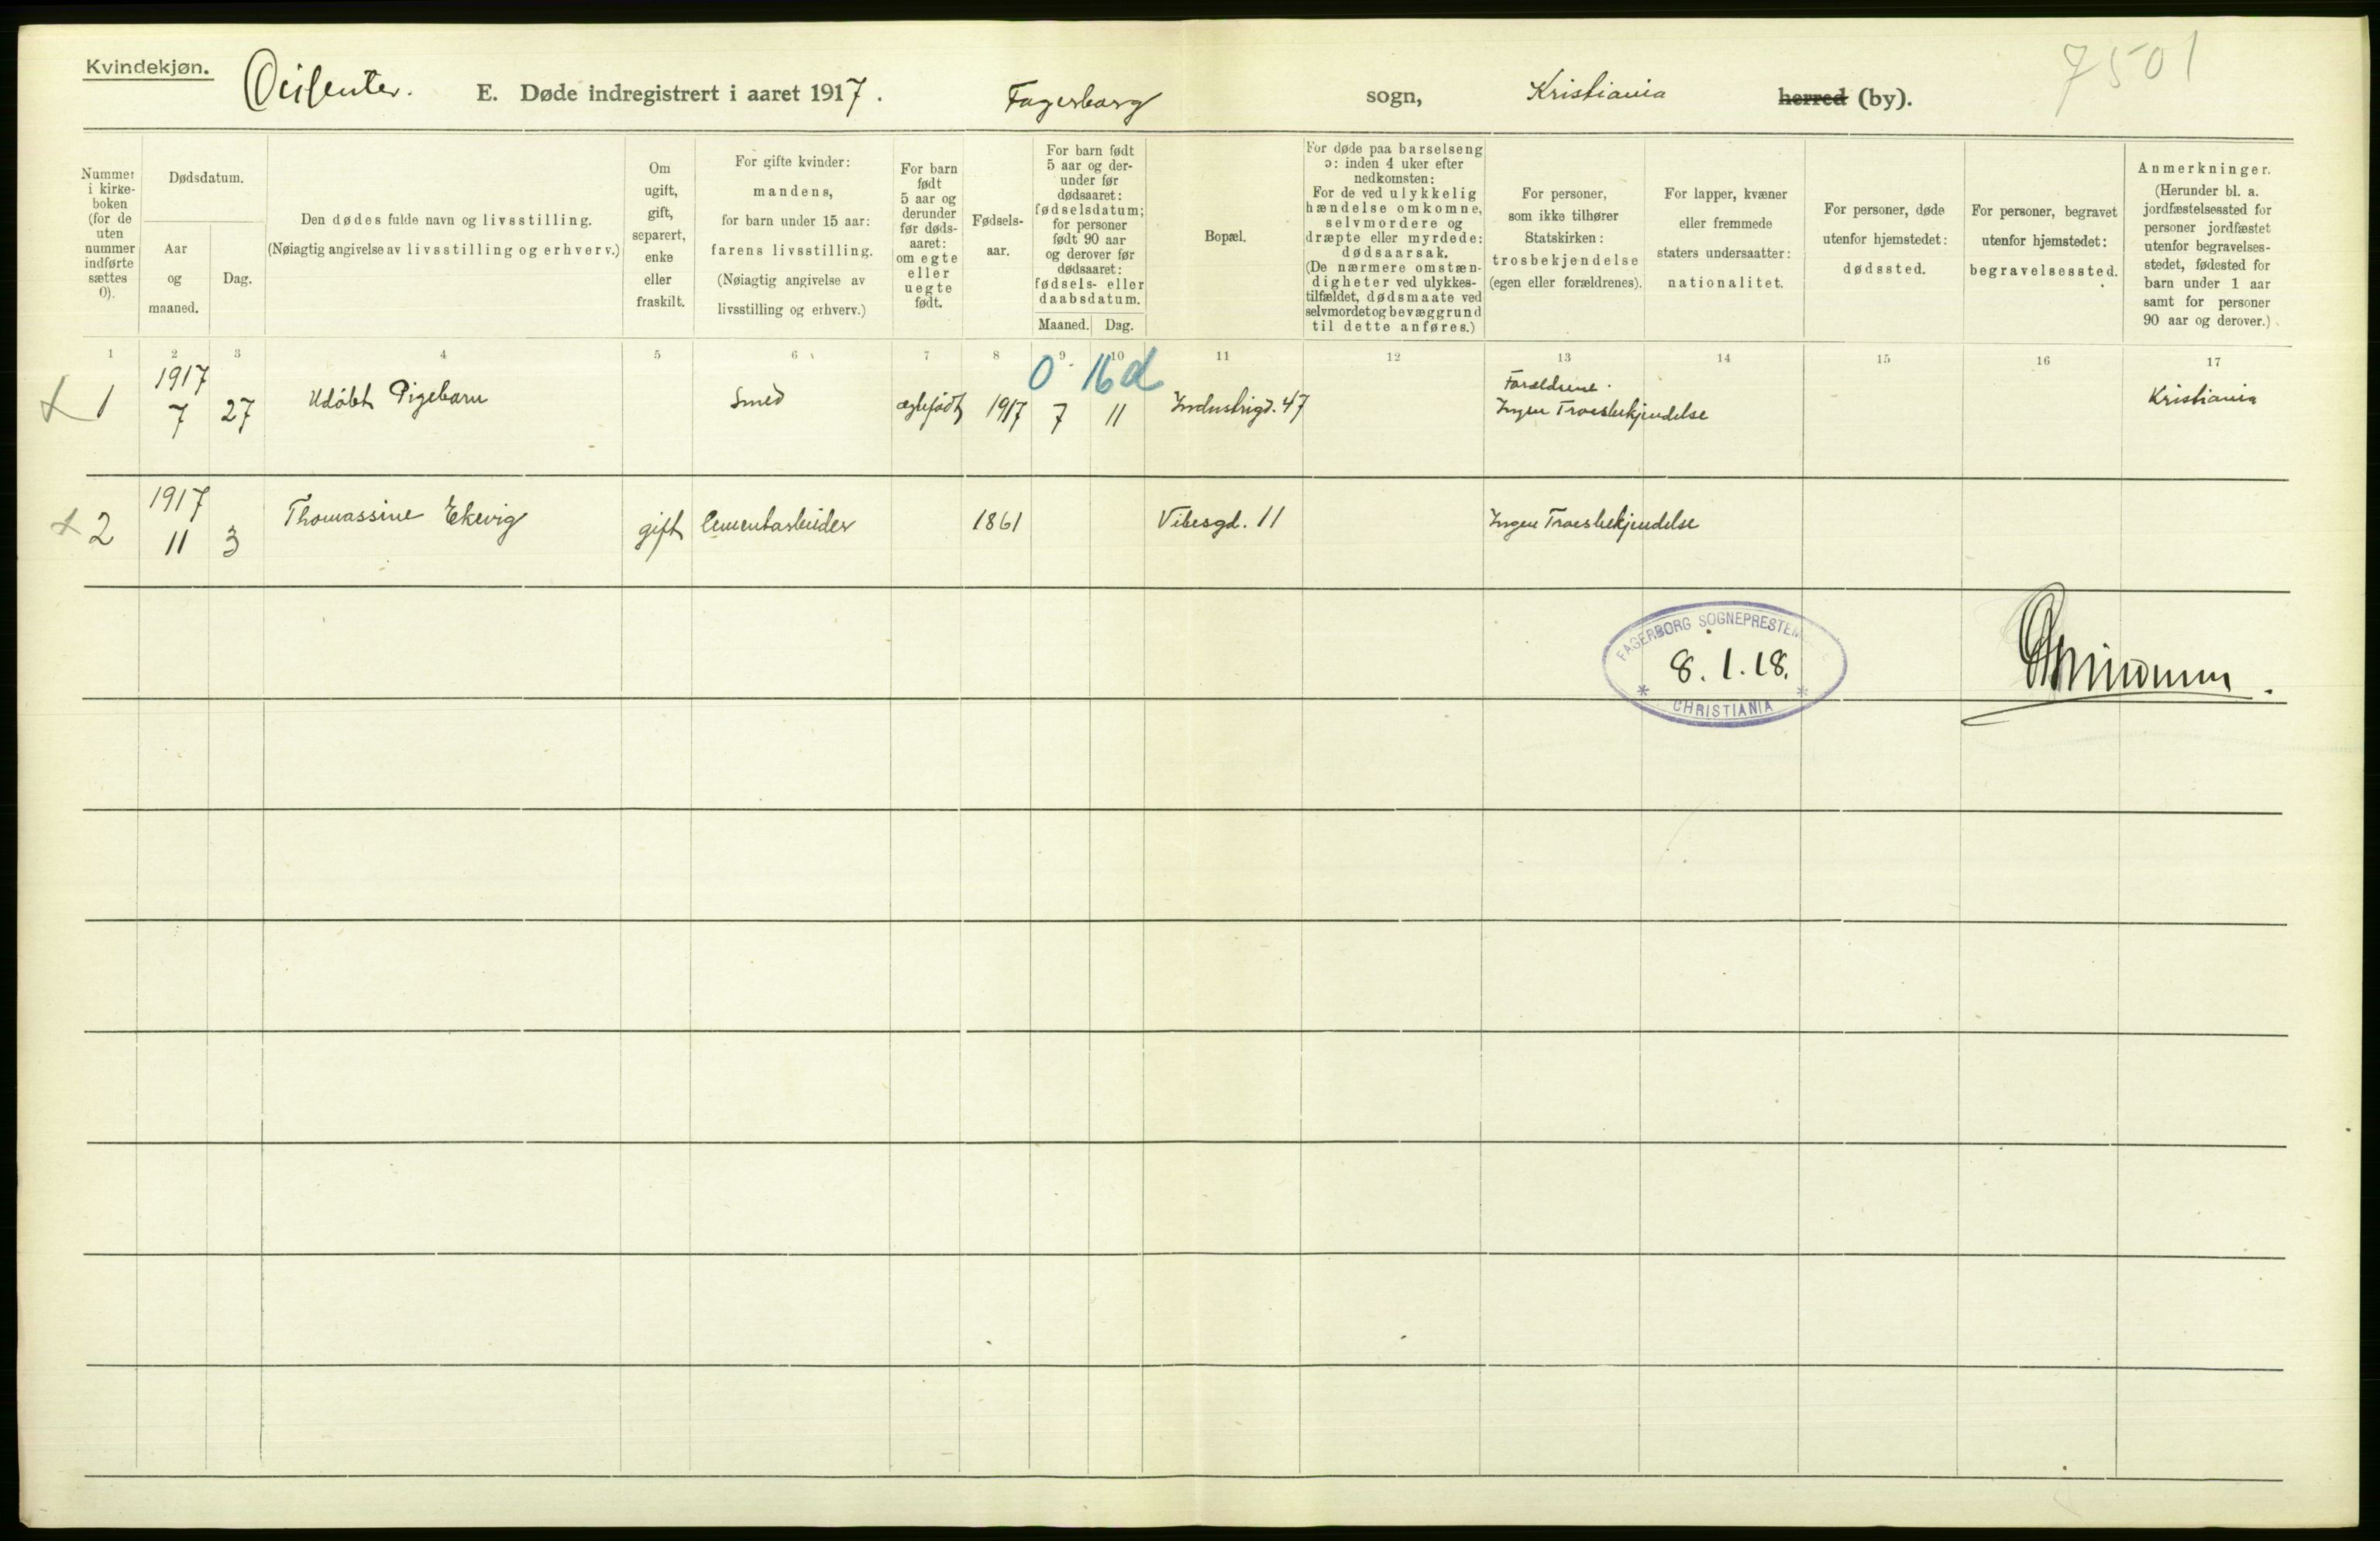 Kvindekjøn.
Disenter.
E. Døde indregistrert i aaret 1917.
Fagerborg sogn, Kristiania herred (by).
7501
Nummer i kirke-boken (for de uten nummer indførte sættes 0).
Dødsdatum.
Aar og maaned.
Dag.
Den dødes fulde navn og livsstilling.
(Nøiagtig angivelse av livsstilling og erhverv.)
Om ugift, gift, separert, enke eller fraskilt.
For gifte kvinder: mandens, for barn under 15 aar: farens livsstilling.
(Nøiagtig angivelse av livsstilling og erhverv.)
For barn født 5 aar og derunder før døds-aaret: om egte eller uegte født.
Fødsels-aar.
For barn født 5 aar og der-under før dødsaaret: fødselsdatum; for personer født 90 aar og derover før dødsaaret: fødsels- eller daabsdatum.
Maaned.
Dag.
Bopæl.
For døde paa barselseng ɔ: inden 4 uker efter nedkomsten: For de ved ulykkelig hændelse omkomne, selvmordere og dræpte eller myrdede: dødsaarsak.
(De nærmere omstæn-digheter ved ulykkes-tilfældet, dødsmaate ved selvmordet og bevæggrund til dette anføres.)
For personer, som ikke tilhører Statskirken: trosbekjendelse (egen eller forældrenes).
For lapper, kvæner eller fremmede staters undersaatter: nationalitet.
For personer, døde utenfor hjemstedet: dødssted.
For personer, begravet utenfor hjemstedet: begravelsessted.
Anmerkninger.
(Herunder bl. a. jordfæstelsessted for personer jordfæstet utenfor begravelses-stedet, fødested for barn under 1 aar samt for personer 90 aar og derover.)
1 2 3 4 5 6 7 8 9 10 11 12 13 14 15 16 17
0 16 d
1 1917 7 27 Udøbt Pigebarn Smed egtefødt 1917 7 11 Industrigd. 47 Forældrene Ingen Troesbekjendelse Kristiania
2 1917 11 3 Thomassine Ekevig gift Cementarbeider 1861 Vibesgd. 11 Ingen Troesbekjendelse
FAGERBORG SOGNEPRESTEM
8.1.18.
* CHRISTIANIA *